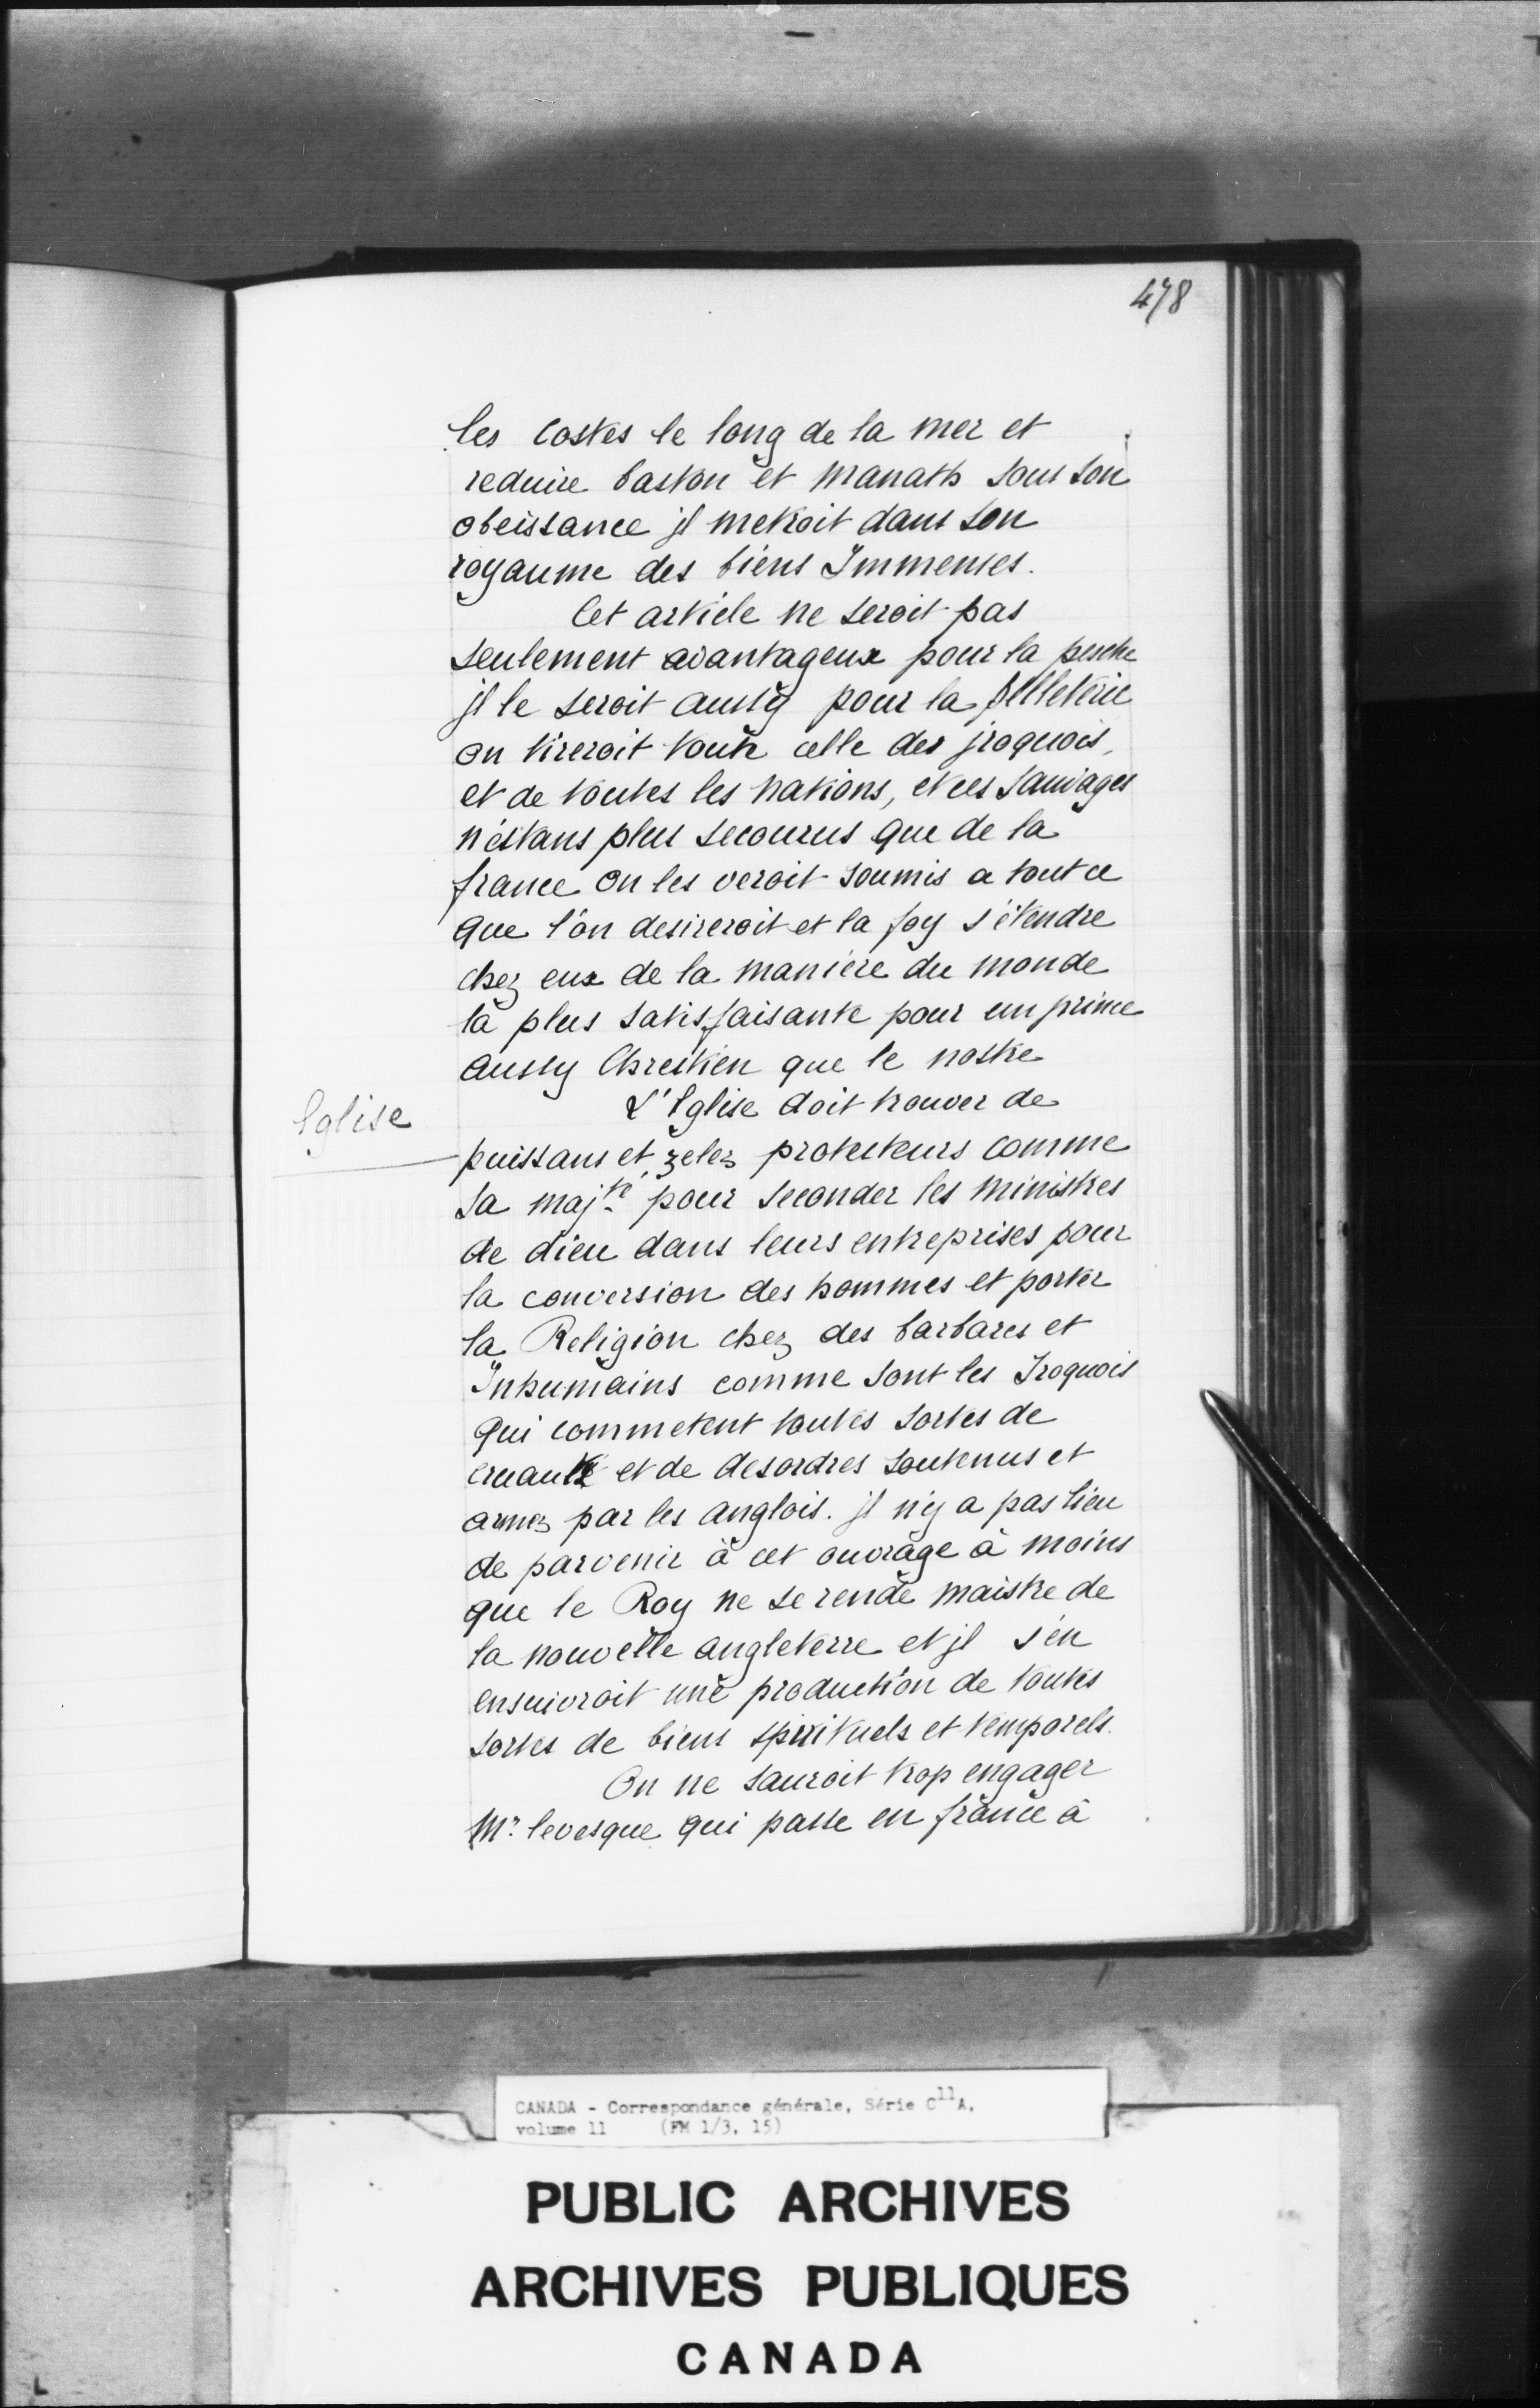 478
les costes le long de la mer et
reduire baston et Manath sous son
obeissance jl metroit dans son
royaume des biens Immenses.
Cet article ne seroit pas
seulement avantageux pour la pesche
jl le seroit aussy pour la pelleterie
on tireroit toute celle des jroquois,
et de toutes les nations, et ces sauvages
n'estans plus secourus que de la
france on les veroit soumis a tout ce
que l'on desireroit et la foy s'étendre
chez eux de la maniere du monde
la plus satisfaisante pour un prince
aussy Chrestien que le nostre
L'Eglise doit trouver de
Eglise
puissans et zelez protecteurs comme
sa maj.té pour seconder les ministres
de dieu dans leurs entreprises pour
la conversion des hommes et porter
la Religion chez des barbares et
Inhumains comme sont les Iroquois
qui commetent toutes sortes de
cruauté et de desordres soutenus et
armez par les anglois. jl n'y a pas lieu
de parvenir à cet ouvrage à moins
que le Roy ne se rende maistre de
la nouvelle angleterre et jl s'en
ensuivroit une production de toutes
sortes de biens spirituels et temporels.
On ne sauroit trop engager
Mr. levesque qui passe en france à
CANADA - Correspondance générale, Série C11A,
volume 11 (FM 1/3, 15)
PUBLIC ARCHIVES
ARCHIVES PUBLIQUES
CANADA